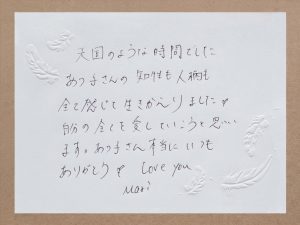 天国のような時間でした
あつ子さんの知性も人柄も
全て感じて生きかえりました♥
自分の全てを愛していこうと思い
ます。あつ子さん本当にいつも
ありがとう♥ Love you
Mari